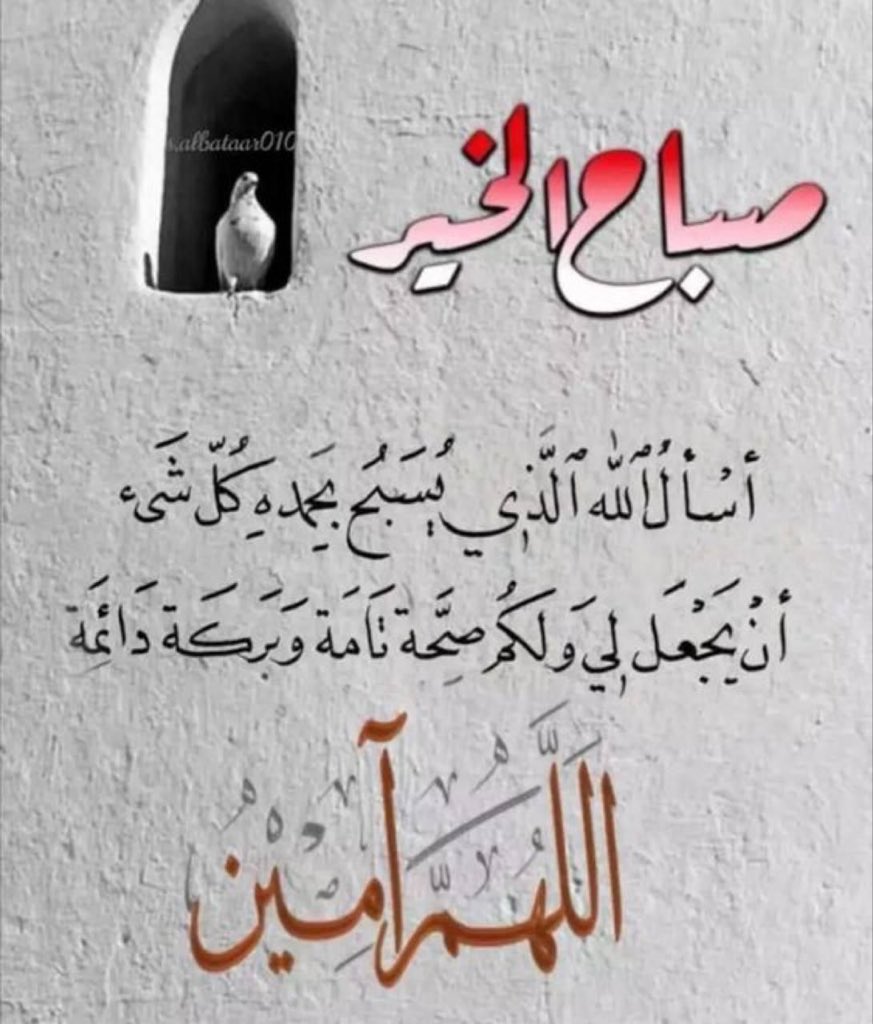 s.albataar010
صباح الخير
أسْألُ ٱللّٰه ٱلَّذِي يُسَبحُ بِحَمدهِ كُلّ شَىء
أنْ يَجْعَل لِي وَلَكُم صِحَّة تَامَة وَبَرَكَة دَائمَة
اللَّهُمَّ آمِيْنُ